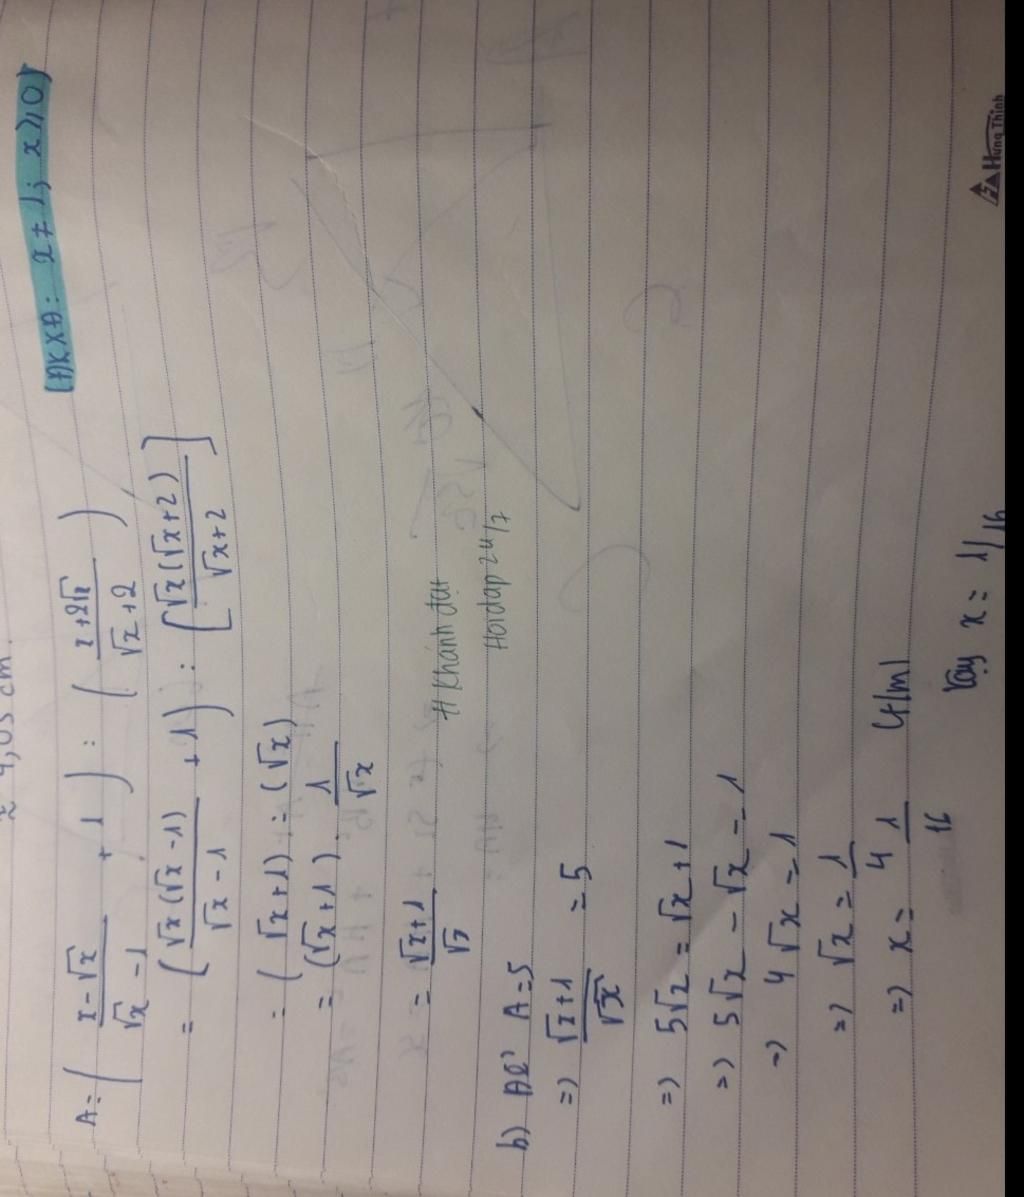 ≈ 4,05 cm.
A = ( (x - √x)/(√x - 1) + 1 ) : ( (x + 2√x)/(√x + 2) ) [ĐKXĐ: x ≠ 1; x ⩾ 0]
= [ √x(√x - 1)/(√x - 1) + 1 ] : [ √x(√x + 2)/(√x + 2) ]
= (√x + 1) : (√x)
= (√x + 1) . 1/√x
= (√x + 1)/√x
# Khánh đạt
Hoidap 24/7
b) Để A = 5
=> (√x + 1)/√x = 5
=> 5√x = √x + 1
=> 5√x - √x = 1
=> 4√x = 1
=> √x = 1/4
=> x = 1/16 (t/m)
Vậy x = 1/16
Hưng Thịnh